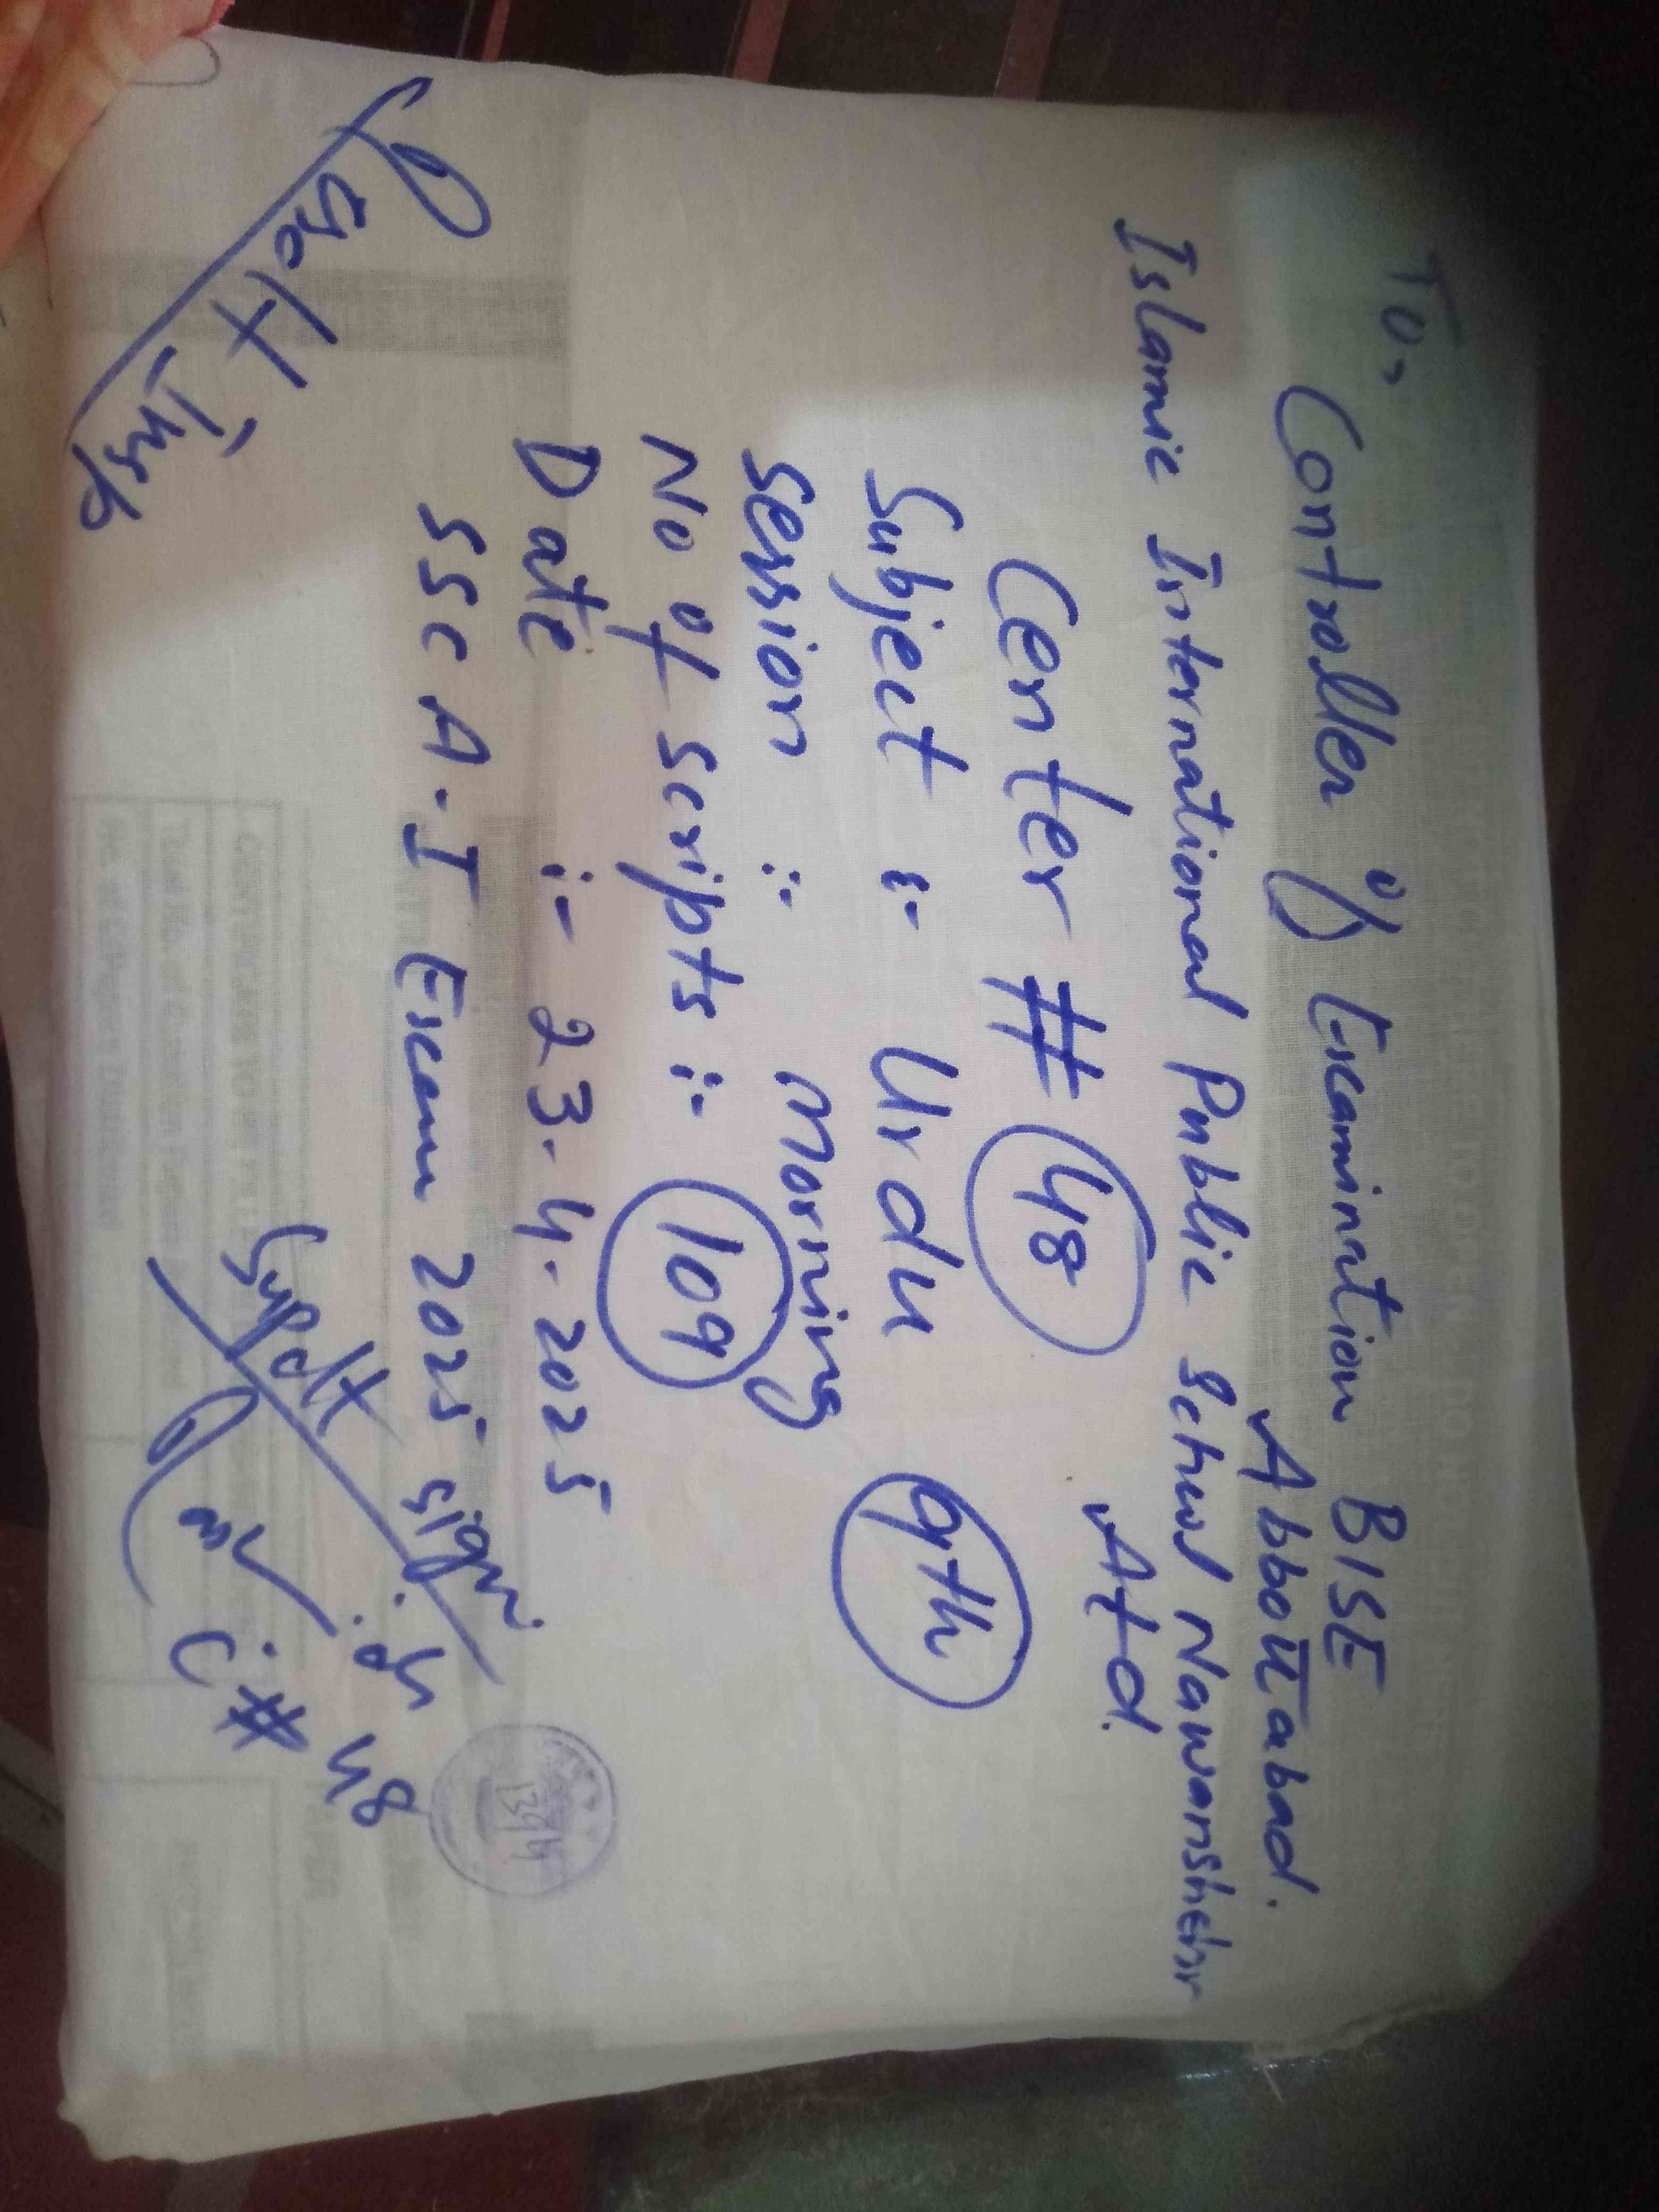 To,
Controller of Examination BISE
Abbottabad.
Islamic International Public School Nawansher
Atd.
Center # 48
Subject :- Urdu 9th
Session :- Morning
No of Scripts :- 109
Date :- 23.4.2025
SSC A-I Exam 2025
Insp
Supdt Sign:
C. # 48